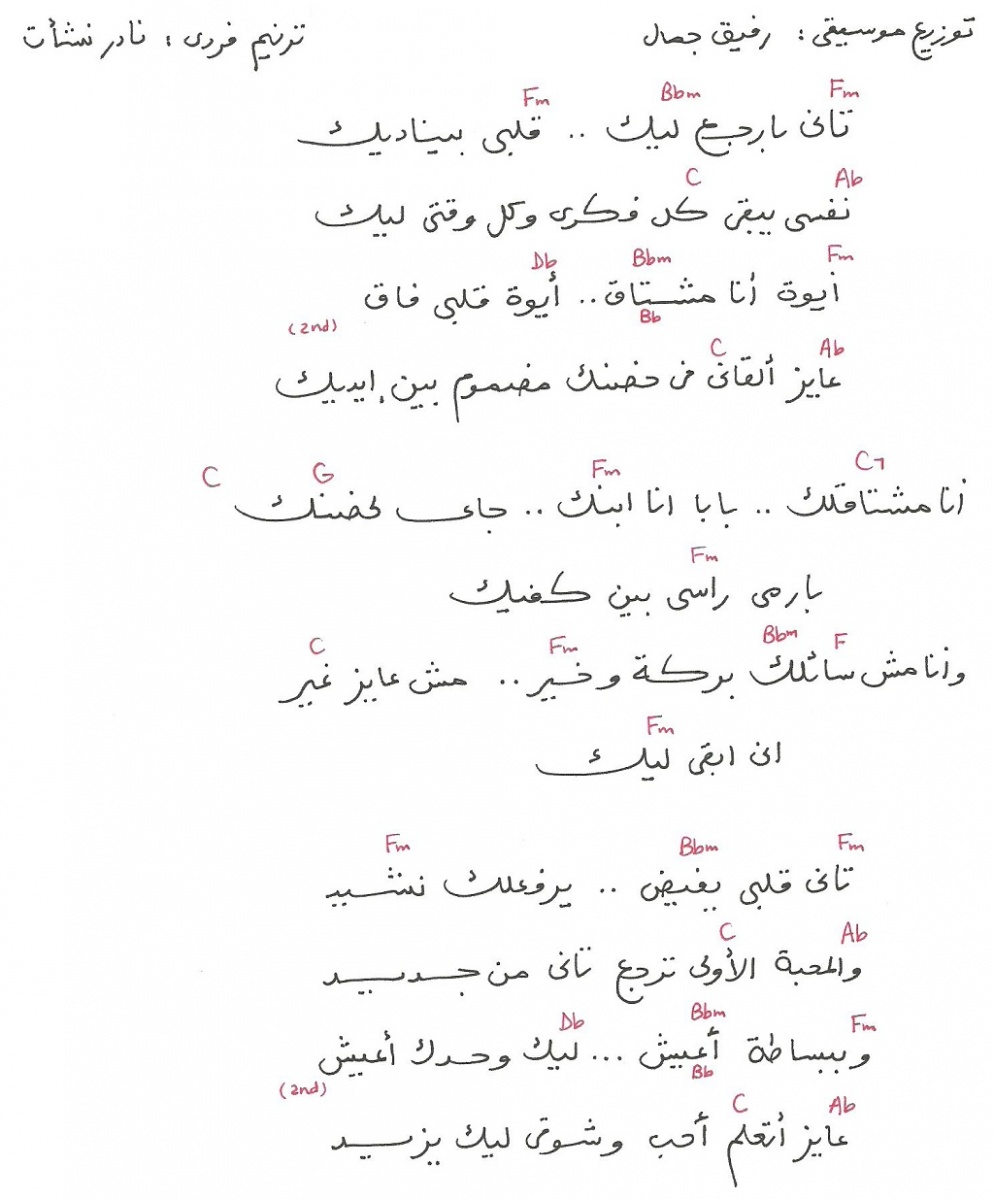 توزيع موسيقى: رفيق جمال    ترنيم فردى: نادر نشأت
Fm Bbm Fm
تانى بارجع ليك .. قلبى بيناديك
Ab C
نفسى يبقى كل فكرى وكل وقتى ليك
Fm Bbm Db
أيوة أنا مشتاق .. أيوة قلبى فاق
Bb (2nd)
Ab C
عايز ألقانى فى حضنك مضموم بين إيديك
C7 Fm G C
أنا مشتاقلك .. بابا انا ابنك .. جاى لحضنك
Fm
بارمى راسى بين كفيك
F Bbm Fm C
وأنا مش سائلك بركة وخير .. مش عايز غير
Fm
انى ابقى ليك
Fm Bbm Fm
تانى قلبى يفيض .. يرفعلك نشيد
Ab C
والمحبة الأولى ترجع تانى من جديد
Fm Bbm Db
وببساطة أعيش ... ليك وحدك أعيش
Bb (2nd)
Ab C
عايز أتعلم أحب وشوقى ليك يزيد